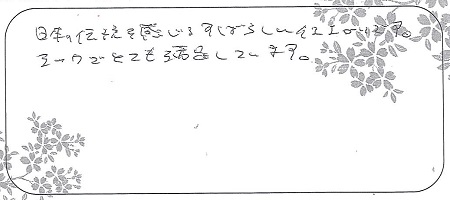 日本の伝統を感じるすばらしい仕上がりです。
とても満足しています。